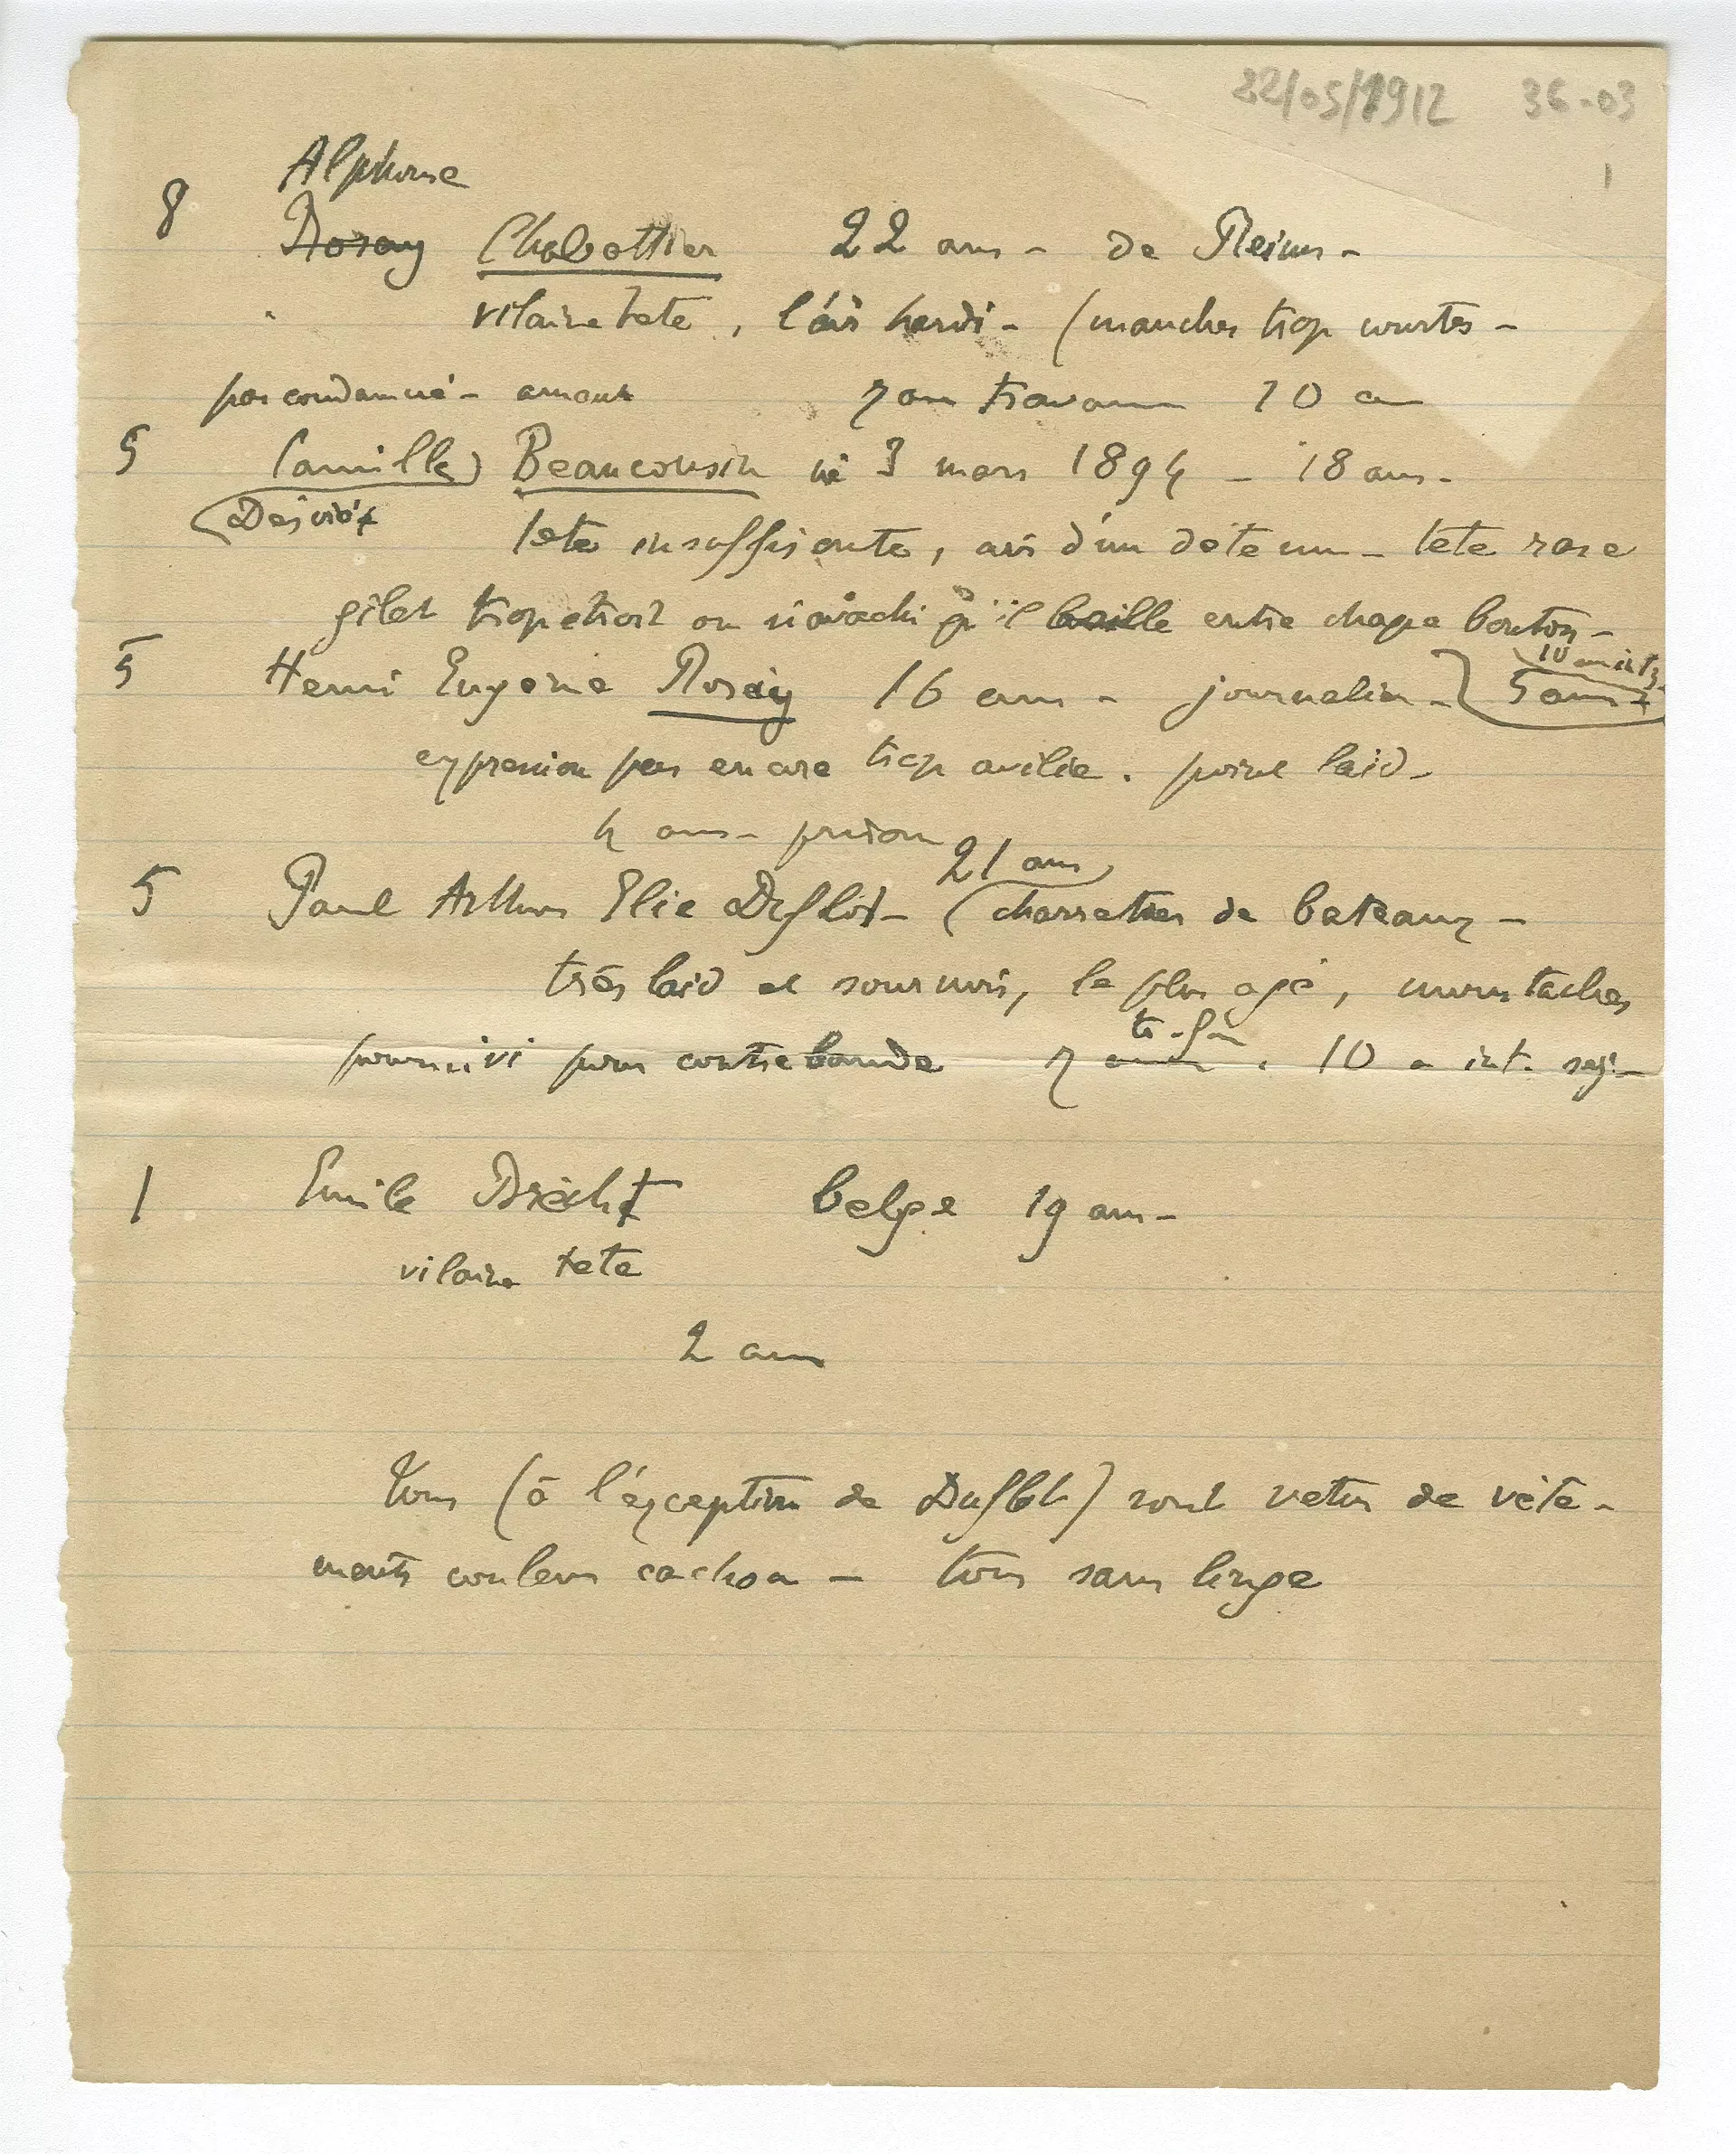 22/05/1912 36-03
1
Alphonse
8 Rosay Chabottier 22 ans - de Reims -
vilaine tete, l'air hardi - (manches trop courtes -
pas condamné - amant 7 ans travaux 10 a
5 (Camille) Beaucousin né 3 mars 1894 - 18 ans -
tete insuffisante, air d'un détenu - tete rase
gilet trop etroit ou si avachi qu'il baille entre chaque bouton -
10 an int
5 Henri Eugène Rosay 16 ans - journalier - 5 ans
expression pas encore trop avilie. point laid -
4 ans - prison
21 ans
5 Paul Arthur Elie Duflot - (charretier de bateaux -
très laid et sournois, le plus agé, moustaches
poursuivi pour contrebande 7 10 a int. sej -
1 Emile Brecht belge 19 ans -
vilaine tete
2 ans
Tous (à l'exception de Duflot) sont vetus de vête-
ments couleur cachou - tous sans linge